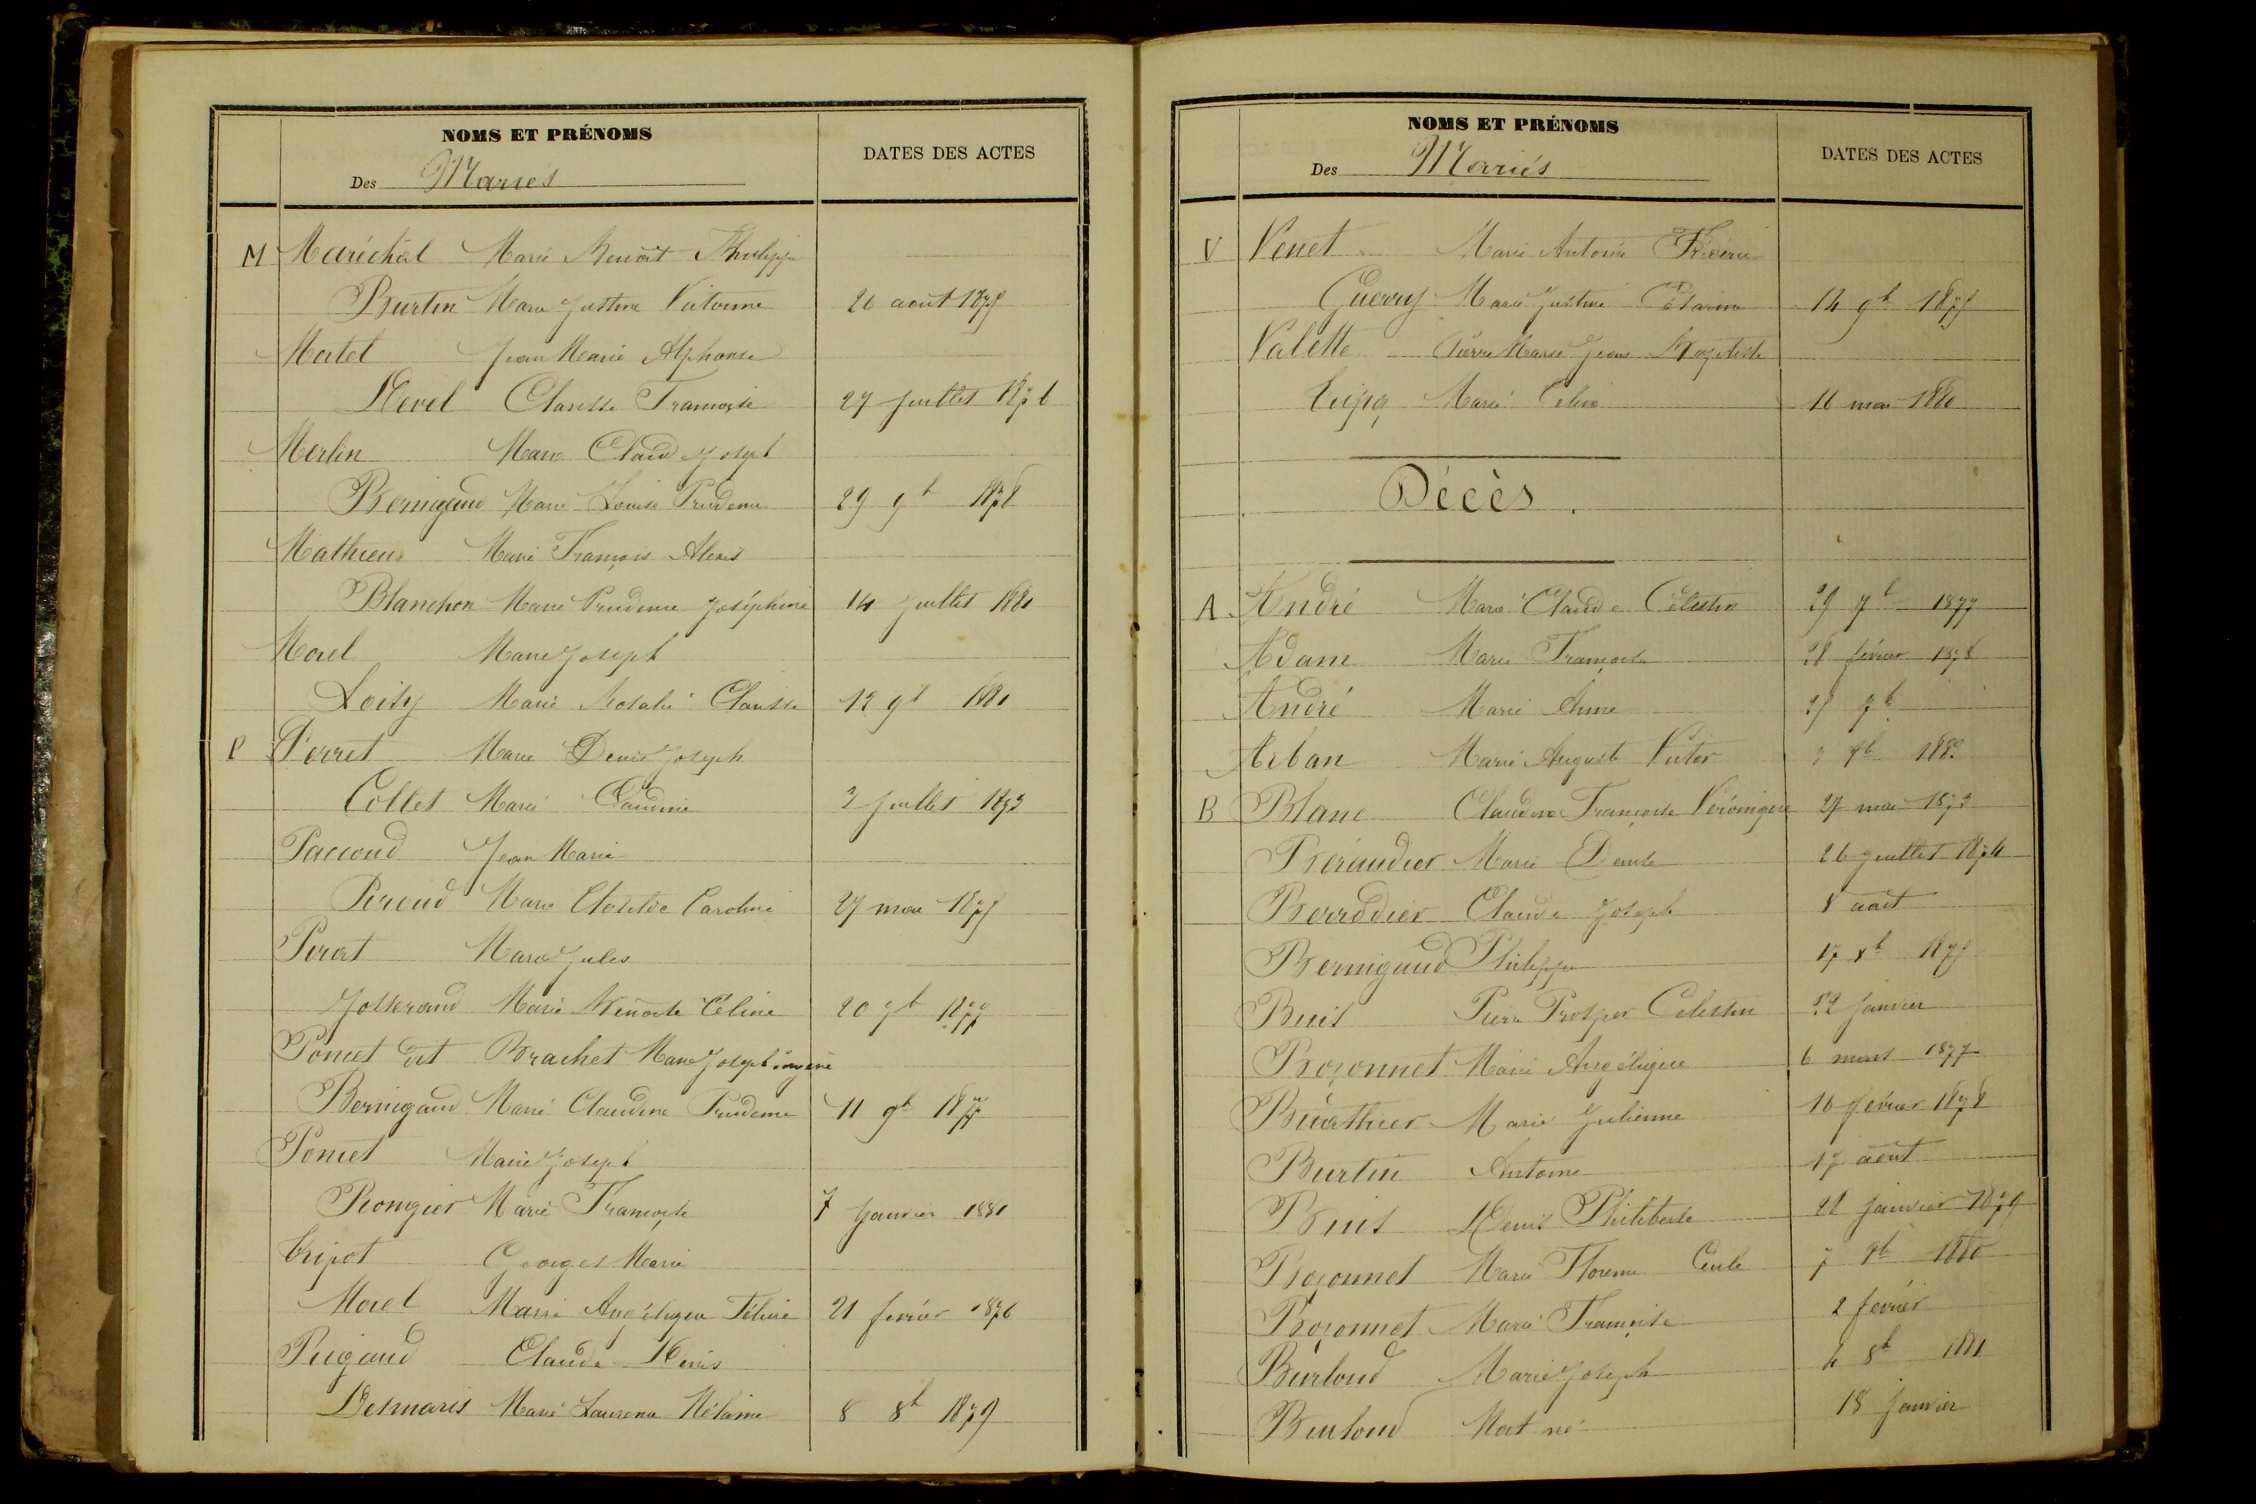 NOMS ET PRÉNOMS
Des Mariés
DATES DES ACTES
M Maréchal Marie Benoit Philippe
Burtin Marie Justine Victorine 26 août 1875
Martel Jean Marie Alphonse
Revel Clarisse Françoise 27 juillet 1876
Merlin Marie Claude Joseph
Bernigaud Marie Louise Prudence 29 9b 1878
Mathieu Marie François Alexis
Blanchon Marie Prudence Joséphine 14 juillet 1880
Morel Marie Joseph
Loisy Marie Rosalie Clarisse 12 9b 1881
P Perret Marie Denis Joseph
Collet Marie Claudine 2 juillet 1873
Paccoud Jean Marie
Peroud Marie Clotilde Caroline 27 mai 1875
Perrat Marie Jules
Josserand Marie Benoite Céline 20 9b 1877
Poncet dit Brachet Marie Joseph
Bernigaud Marie Claudine Prudence 11 9b 1877
Poncet Marie Joseph
Rongier Marie Françoise 7 janvier 1881
Tripot Georges Marie
Morel Marie Angélique Féline 21 février 1876
Rigaud Claude Denis
Desmaris Marie Laurence Mélanie 8 8b 1879
NOMS ET PRÉNOMS
Des Mariés
DATES DES ACTES
V Venet Marie Antoine
Guerry Marie Justine Césarine 14 9b 1875
Valette Pierre Marie Jean Baptiste
Marie Céline 16 mai 1880
Décès.
A André Marie Claude Célestin 29 7b 1877
Adam Marie Françoise 28 février 1878
André Marie 25 9b
Arban Marie Auguste Victor 9b 1880
B Blanc Claudine Françoise Véronique 27 mai 1873
Béraudier Marie Denise 26 juillet 1874
Berrodier Claude Joseph 8 août
Bernigaud Philippe 17 xb 1875
Buis Pierre Prosper Célestin 22 janvier
Boçonnet Marie Angélique 6 mars 1877
Buathier Marie Julienne 16 février 1878
Burtin Antoine 17 août
Buis Denis Philiberte 28 janvier 1879
Boçonnet Marie Florence 7 8b 1880
Boçonnet Marie Françoise 2 février
Burloud Marie Joseph 4 8b 1881
Burloud Mort né 18 janvier